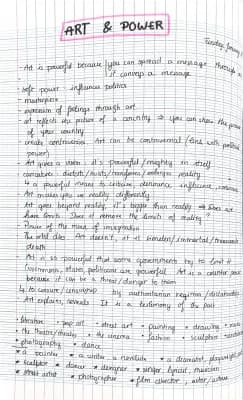 ART & POWER
Tuesday, January
- Art is powerful because you can spread a message through a
it convey a message
- soft power influence politics
- masterpiece
- expression of feelings through art
- art reflects the power of a country ⇒ you can show the power
of your country
- create controversies. Art can be controversial (links with political
power)
- Art gives a vision : it's powerful / mighty in itself
- caricature : distorts / twists / transforms / enlarges reality
↳ a powerful means to criticise, denounce, influence, convince
- Art makes you see reality differently
- Art goes beyond reality, it's bigger than reality ⇒ Does art
have limits? Does it remove the limits of reality?
- Power of the mind of imagination
- The artist dies. Art doesn't, it is timeless / immortal / transcends
death
- Art is so powerful that some governments try to limit it
(governments, states, politicians are powerful. Art is a counter power
because it can be a threat / danger to them
↳ to censure / censorship by authoritarian regimes / dictatorships
- Art explains, reveals. It is a testimony of the past
• literature • pop art • street art • painting • drawing • music
• the theatre / theater • the cinema • fashion • sculpture
• photography • dance
* a painter * a writer, a novelist * a dramatist, playwright
* sculptor * dancer * designer * singer, lyricist, musician
* street artist * photographer * film director, actor / actress